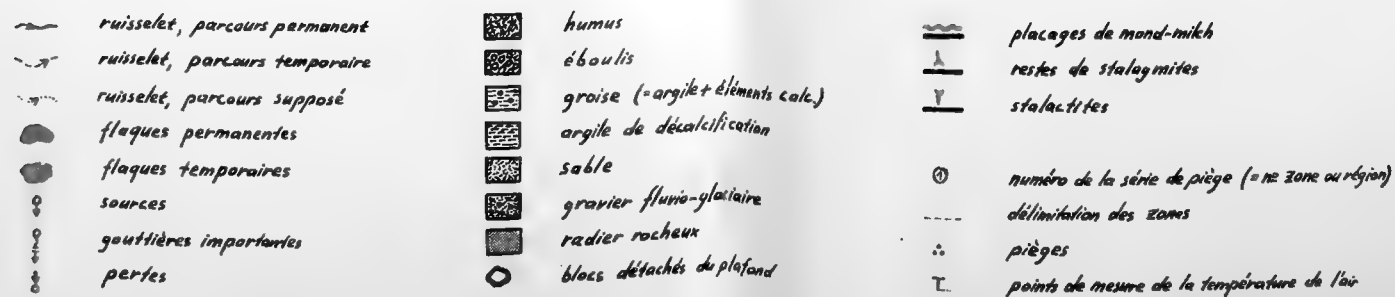 ruisselet, parcours permanent
ruisselet, parcours temporaire
ruisselet, parcours supposé
flaques permanentes
flaques temporaires
sources
gouttières importantes
pertes
humus
éboulis
groise (=argile+éléments calc.)
argile de décalcification
sable
gravier fluvio-glaciaire
radier rocheux
blocs détachés du plafond
placages de mond-milch
restes de stalagmites
stalactites
① numéro de la série de piège (=ne zone ou région)
délimitation des zones
pièges
T points de mesure de la température de l'air